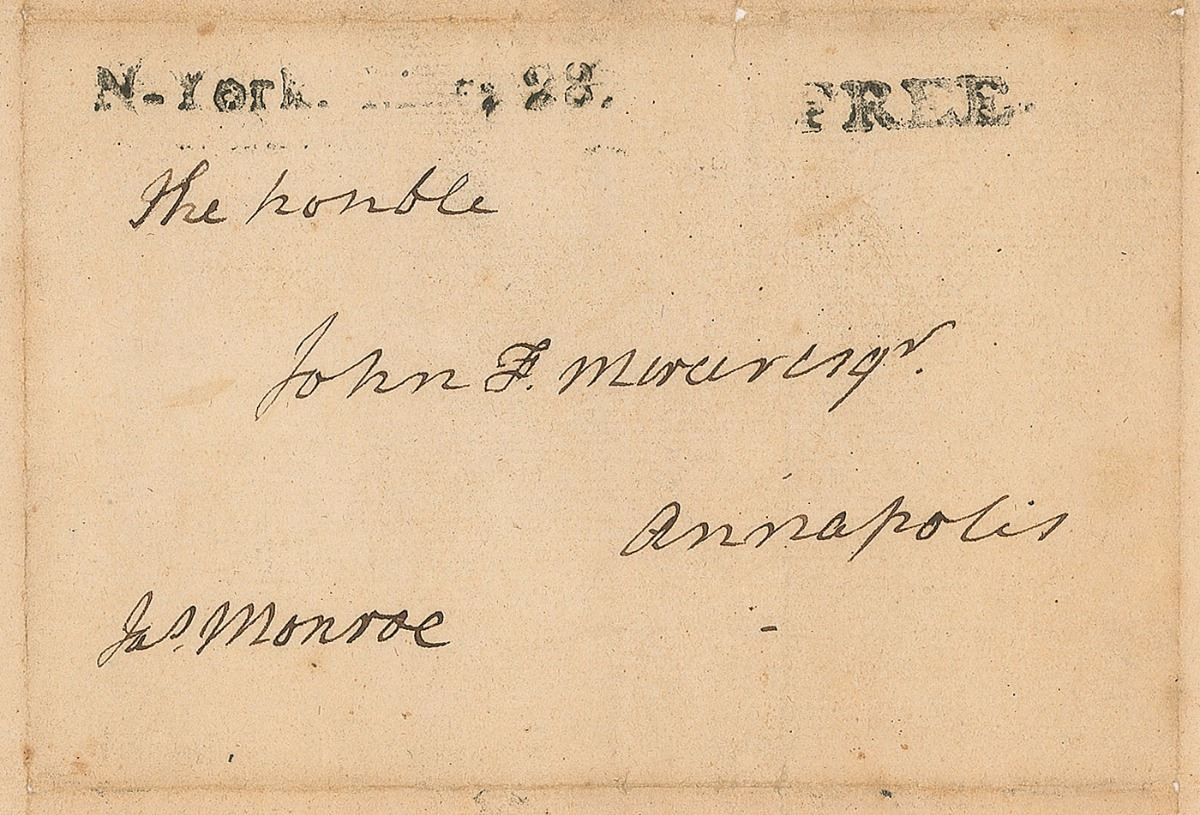 N-York. 28. FREE.
The honble
John F. Mercer esqr.
Annapolis
Jas. Monroe